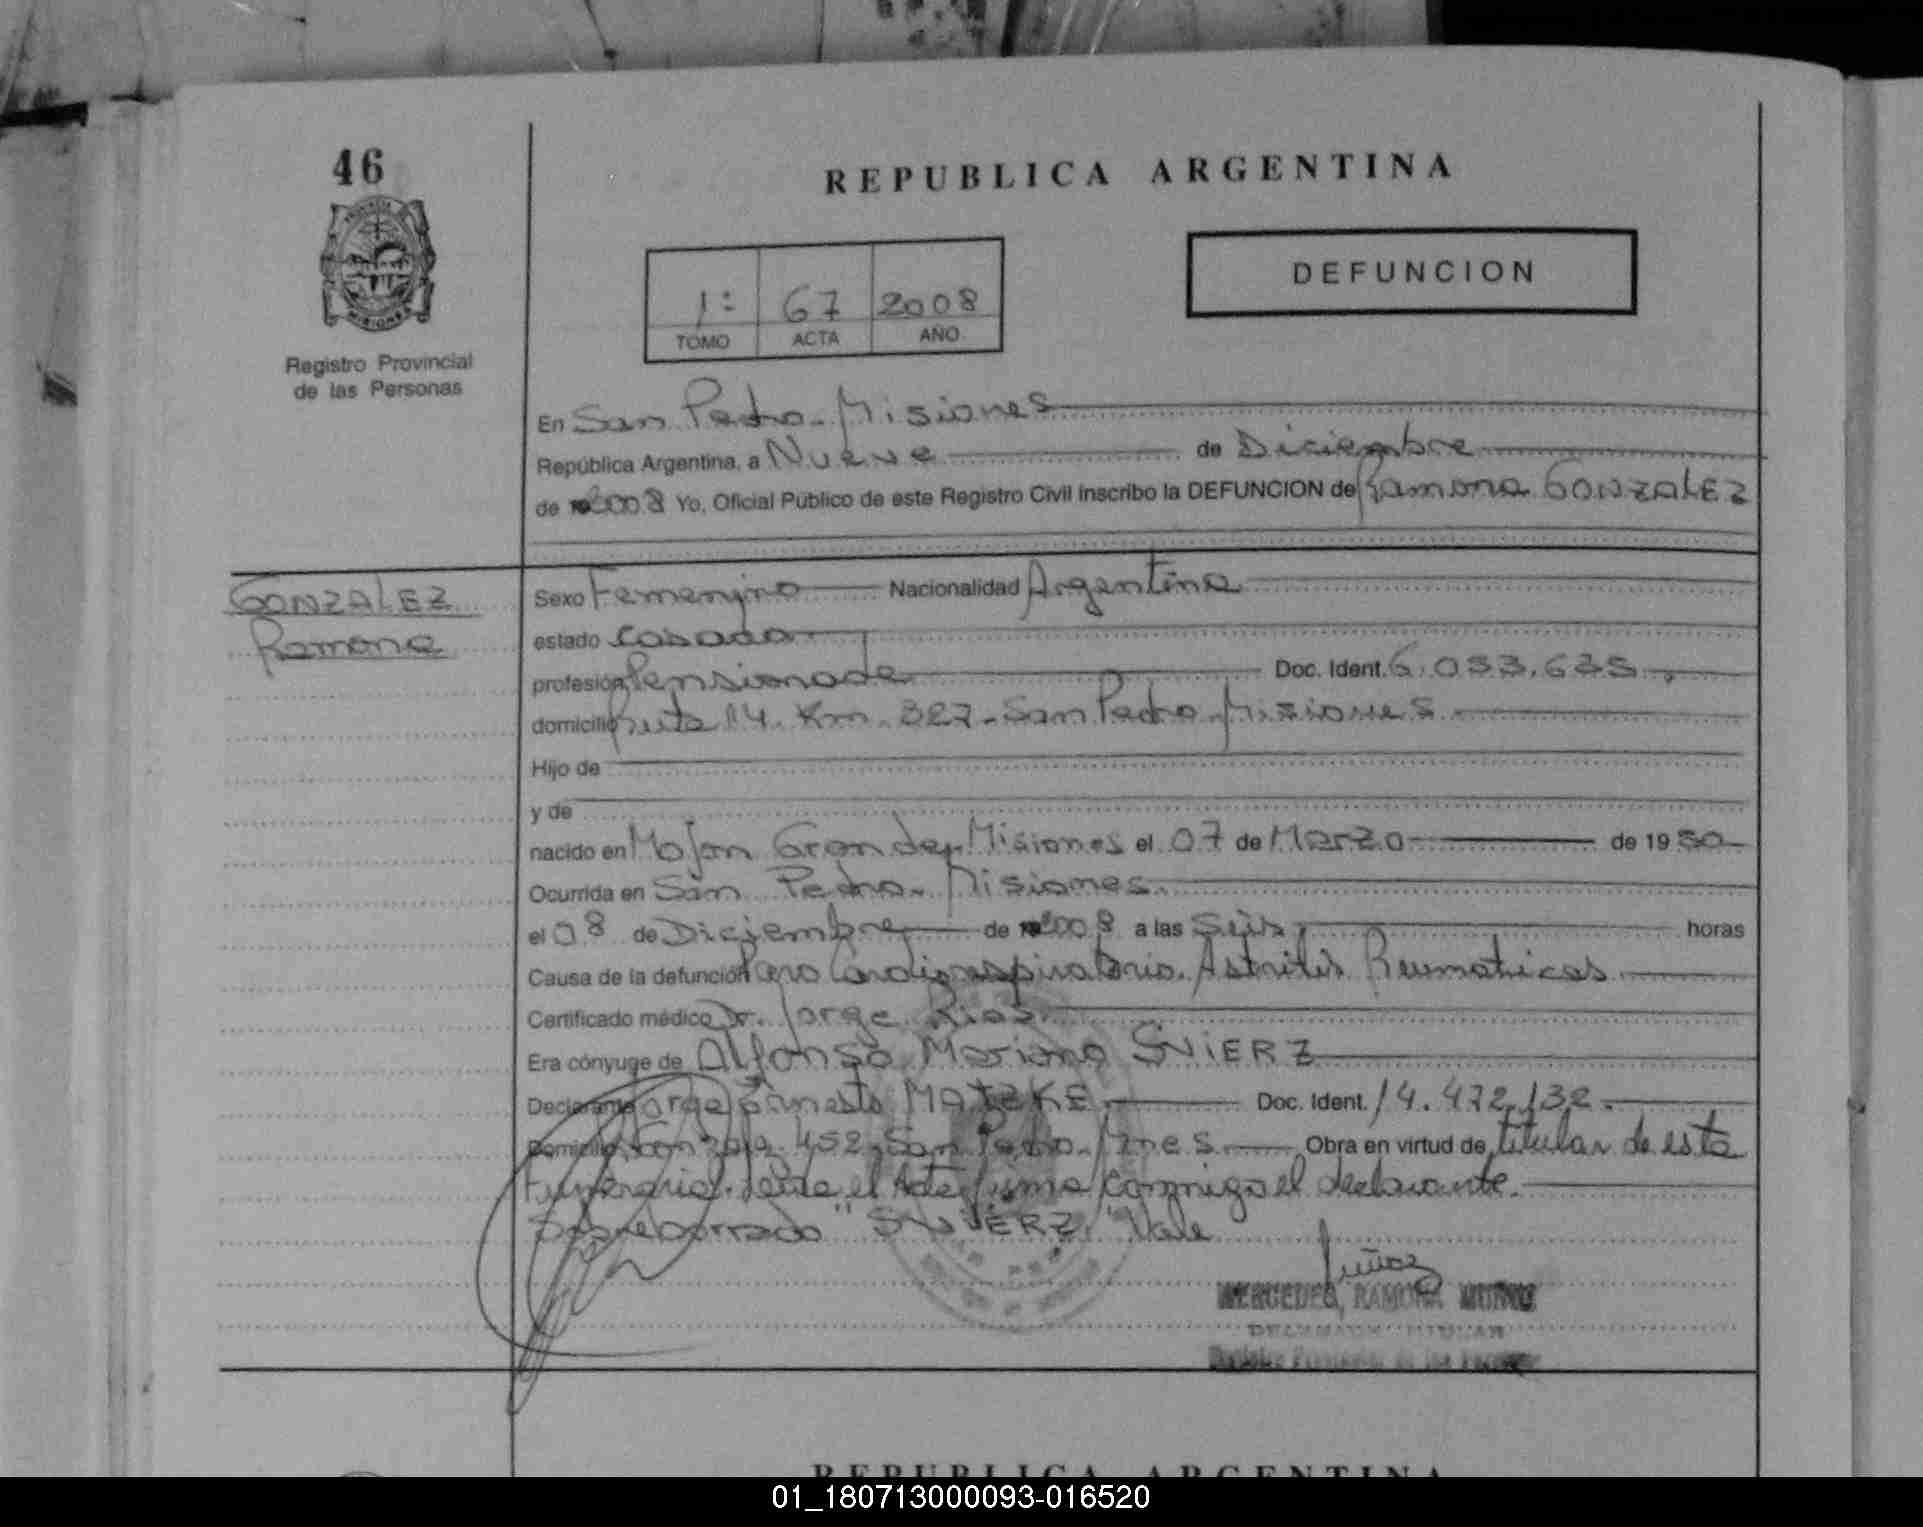 46
REPUBLICA ARGENTINA
PROVINCIA
MISIONES
DEFUNCION
1: 67 2008
TOMO ACTA AÑO
Registro Provincial
de las Personas
En San Pedro - Misiones
República Argentina, a Nueve de Diciembre
de 2008 Yo, Oficial Público de este Registro Civil inscribo la DEFUNCION de Ramona GONZALEZ
GONZALEZ
Ramona
Sexo Femenino Nacionalidad Argentina
estado casada
profesión Pensionada Doc. Ident. 6.053.635
domicilio Ruta 14 Km. 327 - San Pedro - Misiones
Hijo de
y de
nacido en Mojon Grande, Misiones el 07 de Marzo de 1950
Ocurrida en San Pedro - Misiones
el 08 de Diciembre de 2008 a las Seis horas
Causa de la defunción Paro Cardiorespiratorio. Astritis Reumaticas
Certificado médico Dr. Jorge Rios
Era cónyuge de Alfonso Mariano SNIERZ
Declarante Jorge Ernesto MATZKE Doc. Ident. 14.472.132.
Domicilio 452, San Pedro - Mnes Obra en virtud de titular de esta
Funeraria. Leida el Acta firma conmigo el declarante.
Sobreborrado " SNIERZ " Vale
Muñoz
MERCEDES RAMONA MUÑOZ
DELEGADA TITULAR
Registro Provincial de las Personas
REPUBLICA ARGENTINA
01_180713000093-016520